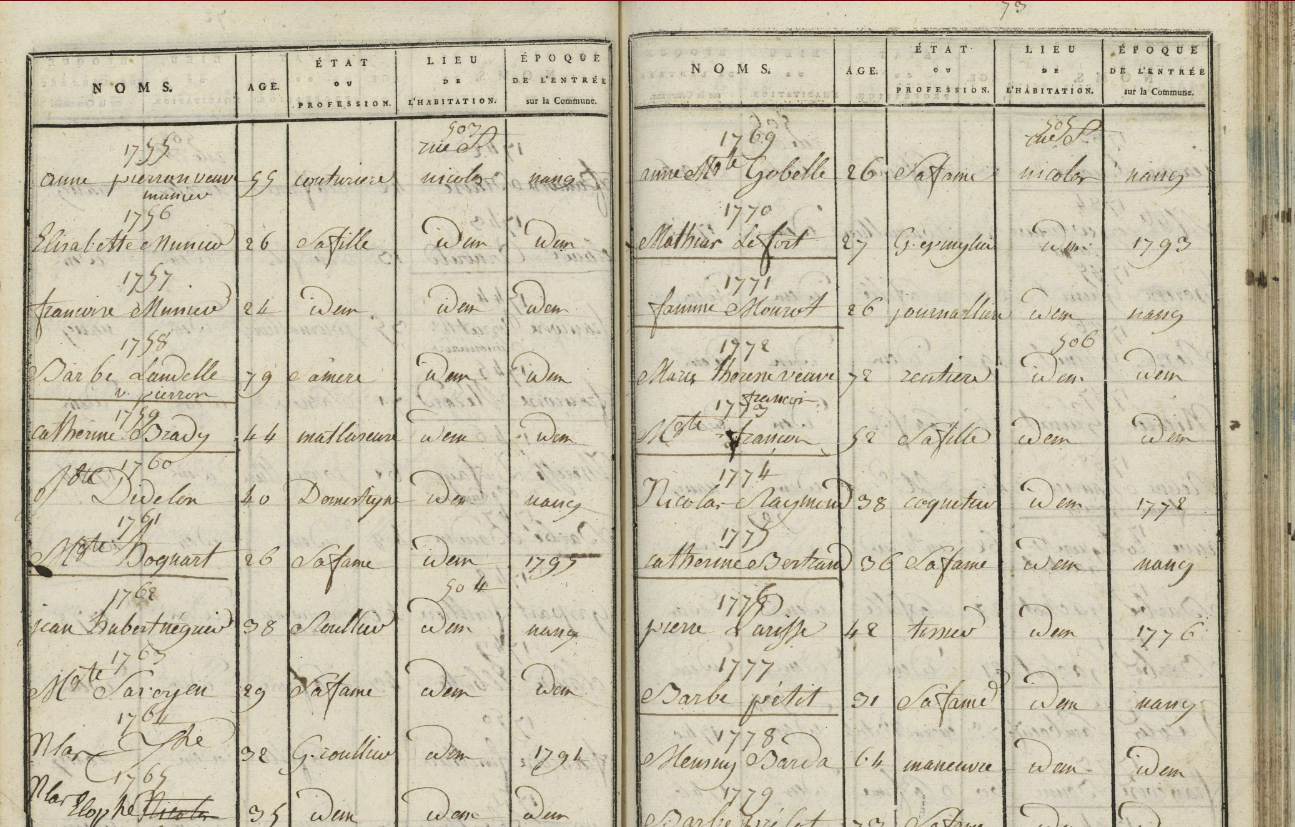 73
NOMS. AGE. ÉTAT OU PROFESSION. LIEU DE L'HABITATION. ÉPOQUE DE L'ENTRÉE sur la Commune.
1755 503 rue St
anne pierron veuve 55 couturiere nicolas nancy
munier
1756
Elisabette Munier 26 Safille idem idem
1757
francoise Munier 24 idem idem idem
1758
Barbe Landelle 79 samere idem idem
v. pierron
1759
catherine Brady 44 matlaseuse idem idem
1760
Didelon 40 Domestique idem nancy
1761
Mgte Dognart 26 Safame idem 1795
1762 504
jean hubert 38 idem nancy
1763
Mgte Savoyen 29 Safame idem idem
1764
32 idem 1794
1765
Elophe 35 idem idem idem
NOMS. AGE. ÉTAT OU PROFESSION. LIEU DE L'HABITATION. ÉPOQUE DE L'ENTRÉE sur la Commune.
1769 505 rue St
anne Mgte Gobelle 26 Safame nicolas nancy
1770
Mathias Lefort 27 idem 1793
1771
famme Mourot 26 journalliere idem nancy
1772 506
Maris therese veuve 72 rentiere idem idem
francois
1773
Mgte francois 52 Safille idem idem
1774
Nicolas Raymond 38 coquetier idem 1772
1775
catherine Bertrand 36 Safame idem nancy
1776
pierre Larisse 42 tissier idem 1776
1777
Barbe pétit 31 Safame idem nancy
1778
Barda 64 maneuvre idem idem
1779
Barbe 73 Safame idem idem